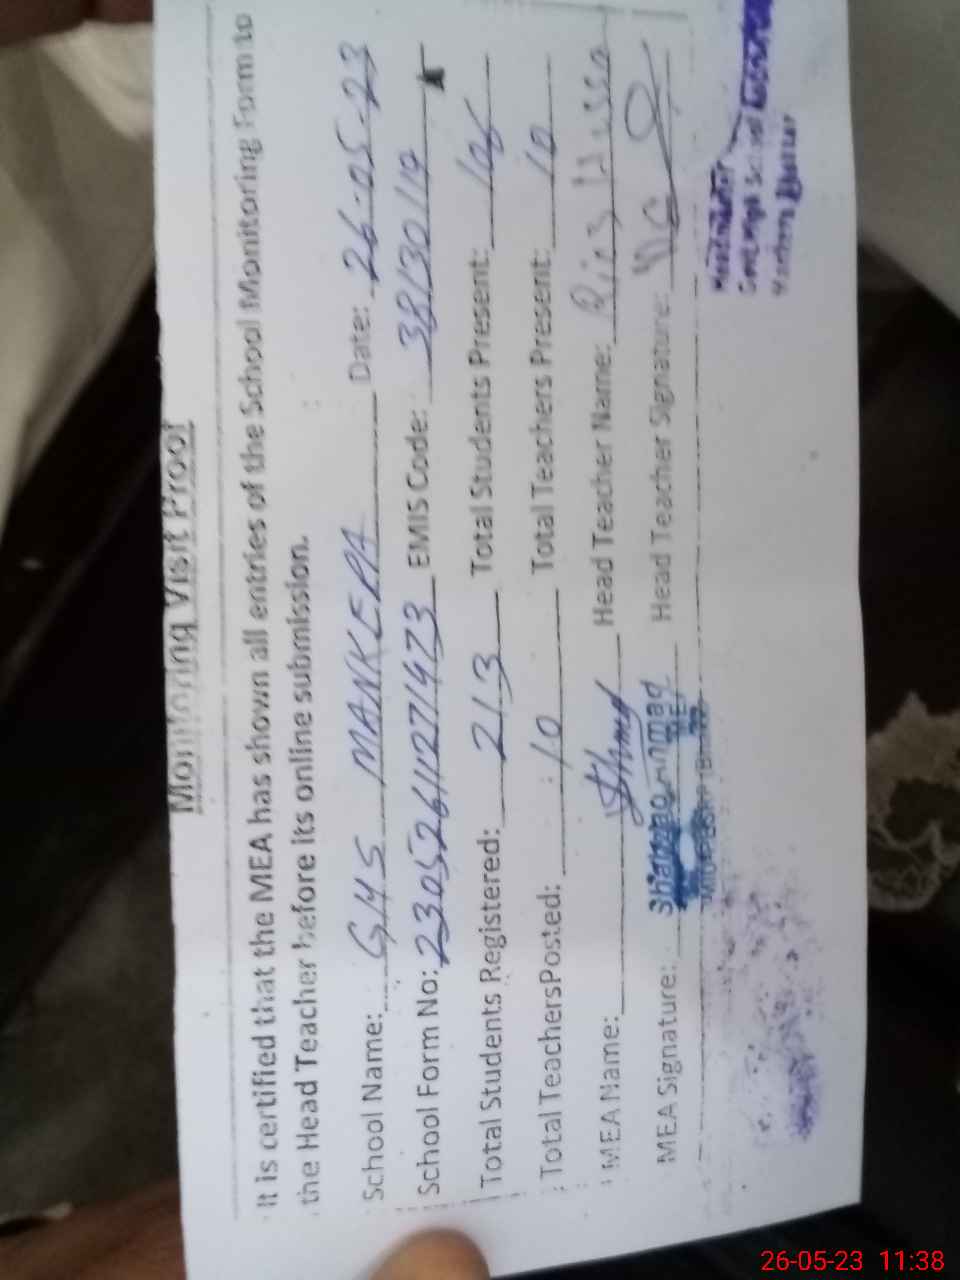 Monitoring Visit Proof
It is certified that the MEA has shown all entries of the School Monitoring Form to
the Head Teacher before its online submission.
School Name: GHS MANKERA Date: 26-05-23
School Form No: 23052611271473 EMIS Code: 38130119
Total Students Registered: 213 Total Students Present: 106
Total TeachersPosted: 10 Total Teachers Present: 10
MEA Name: Head Teacher Name:
MEA Signature: Head Teacher Signature:
Govt. High School
26-05-23 11:38